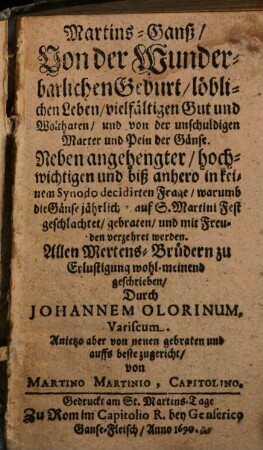 Martins-Ganß/
Von der Wunder-
barlichen Geburt/löbli-
chen Leben/vielfältigen Gut und
Wolthaten/ und von der unschuldigen
Marter und Pein der Gänse.
Neben angehengter/hoch-
wichtigen und biß anhero in kei-
nem Synodo decidirten Frage/warumb
die Gänse jährlich auf S. Martini Fest
geschlachtet/gebraten/ und mit Freu-
den verzehret werden.
Allen Mertens-Brüdern zu
Erlustigung wohl-meinend
geschrieben/
Durch
JOHANNEM OLORINUM,
Variscum.
Anietzo aber von neuen gebraten und
auffs beste zugericht/
von
MARTINO MARTINIO, CAPITOLINO.
Gedruckt am St. Martins-Tage
Zu Rom im Capitolio R. bey Genserico
Ganse-Fleisch/Anno 1690.